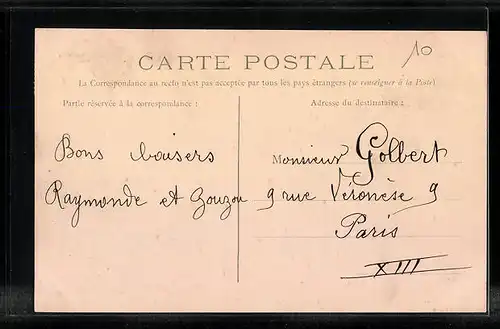 CARTE POSTALE
10
La Correspondance au recto n'est pas acceptée par tous les pays étrangers (se renseigner à la Poste)
Partie réservée à la correspondance :
Adresse du destinataire :
Bons baisers
Raymonde et Zouzou
Monsieur Golbert
9 rue Véronèse 9
Paris
XIII